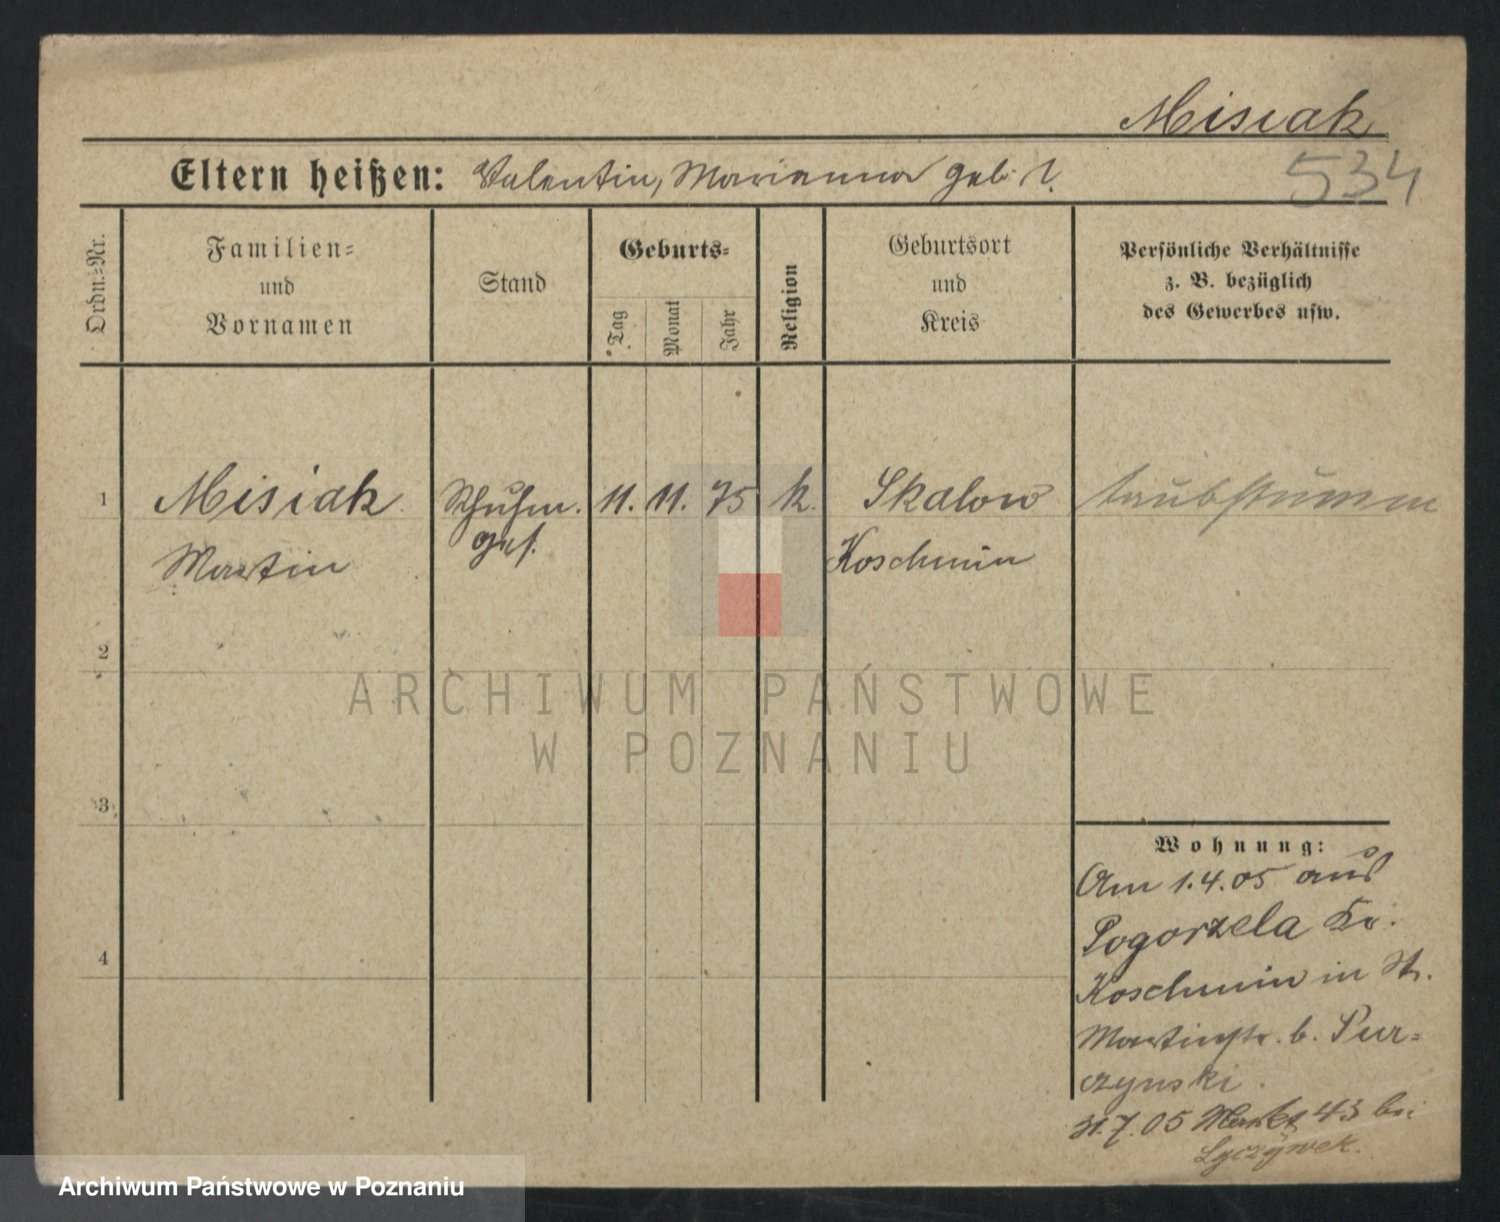 Misiak
534
Eltern heißen: Valentin, Marianna geb. ?
Ordn.-Nr.
Familien- und Vornamen
Stand
Geburts-
Tag
Monat
Jahr
Religion
Geburtsort und Kreis
Persönliche Verhältnisse
z. B. bezüglich
des Gewerbes usw.
1 Misiak Schuhm. 11. 11. 75 k. Skalow taubstumm
Martin ges. Koschmin
2
ARCHIWUM PAŃSTWOWE
W POZNANIU
3
Wohnung:
Am 1.4.05 aus
Pogorzela Kr.
4
Koschmin in St.
Martinstr. b. Pur-
czynski.
31.7.05 Markt 43 bei
Archiwum Państwowe w Poznaniu